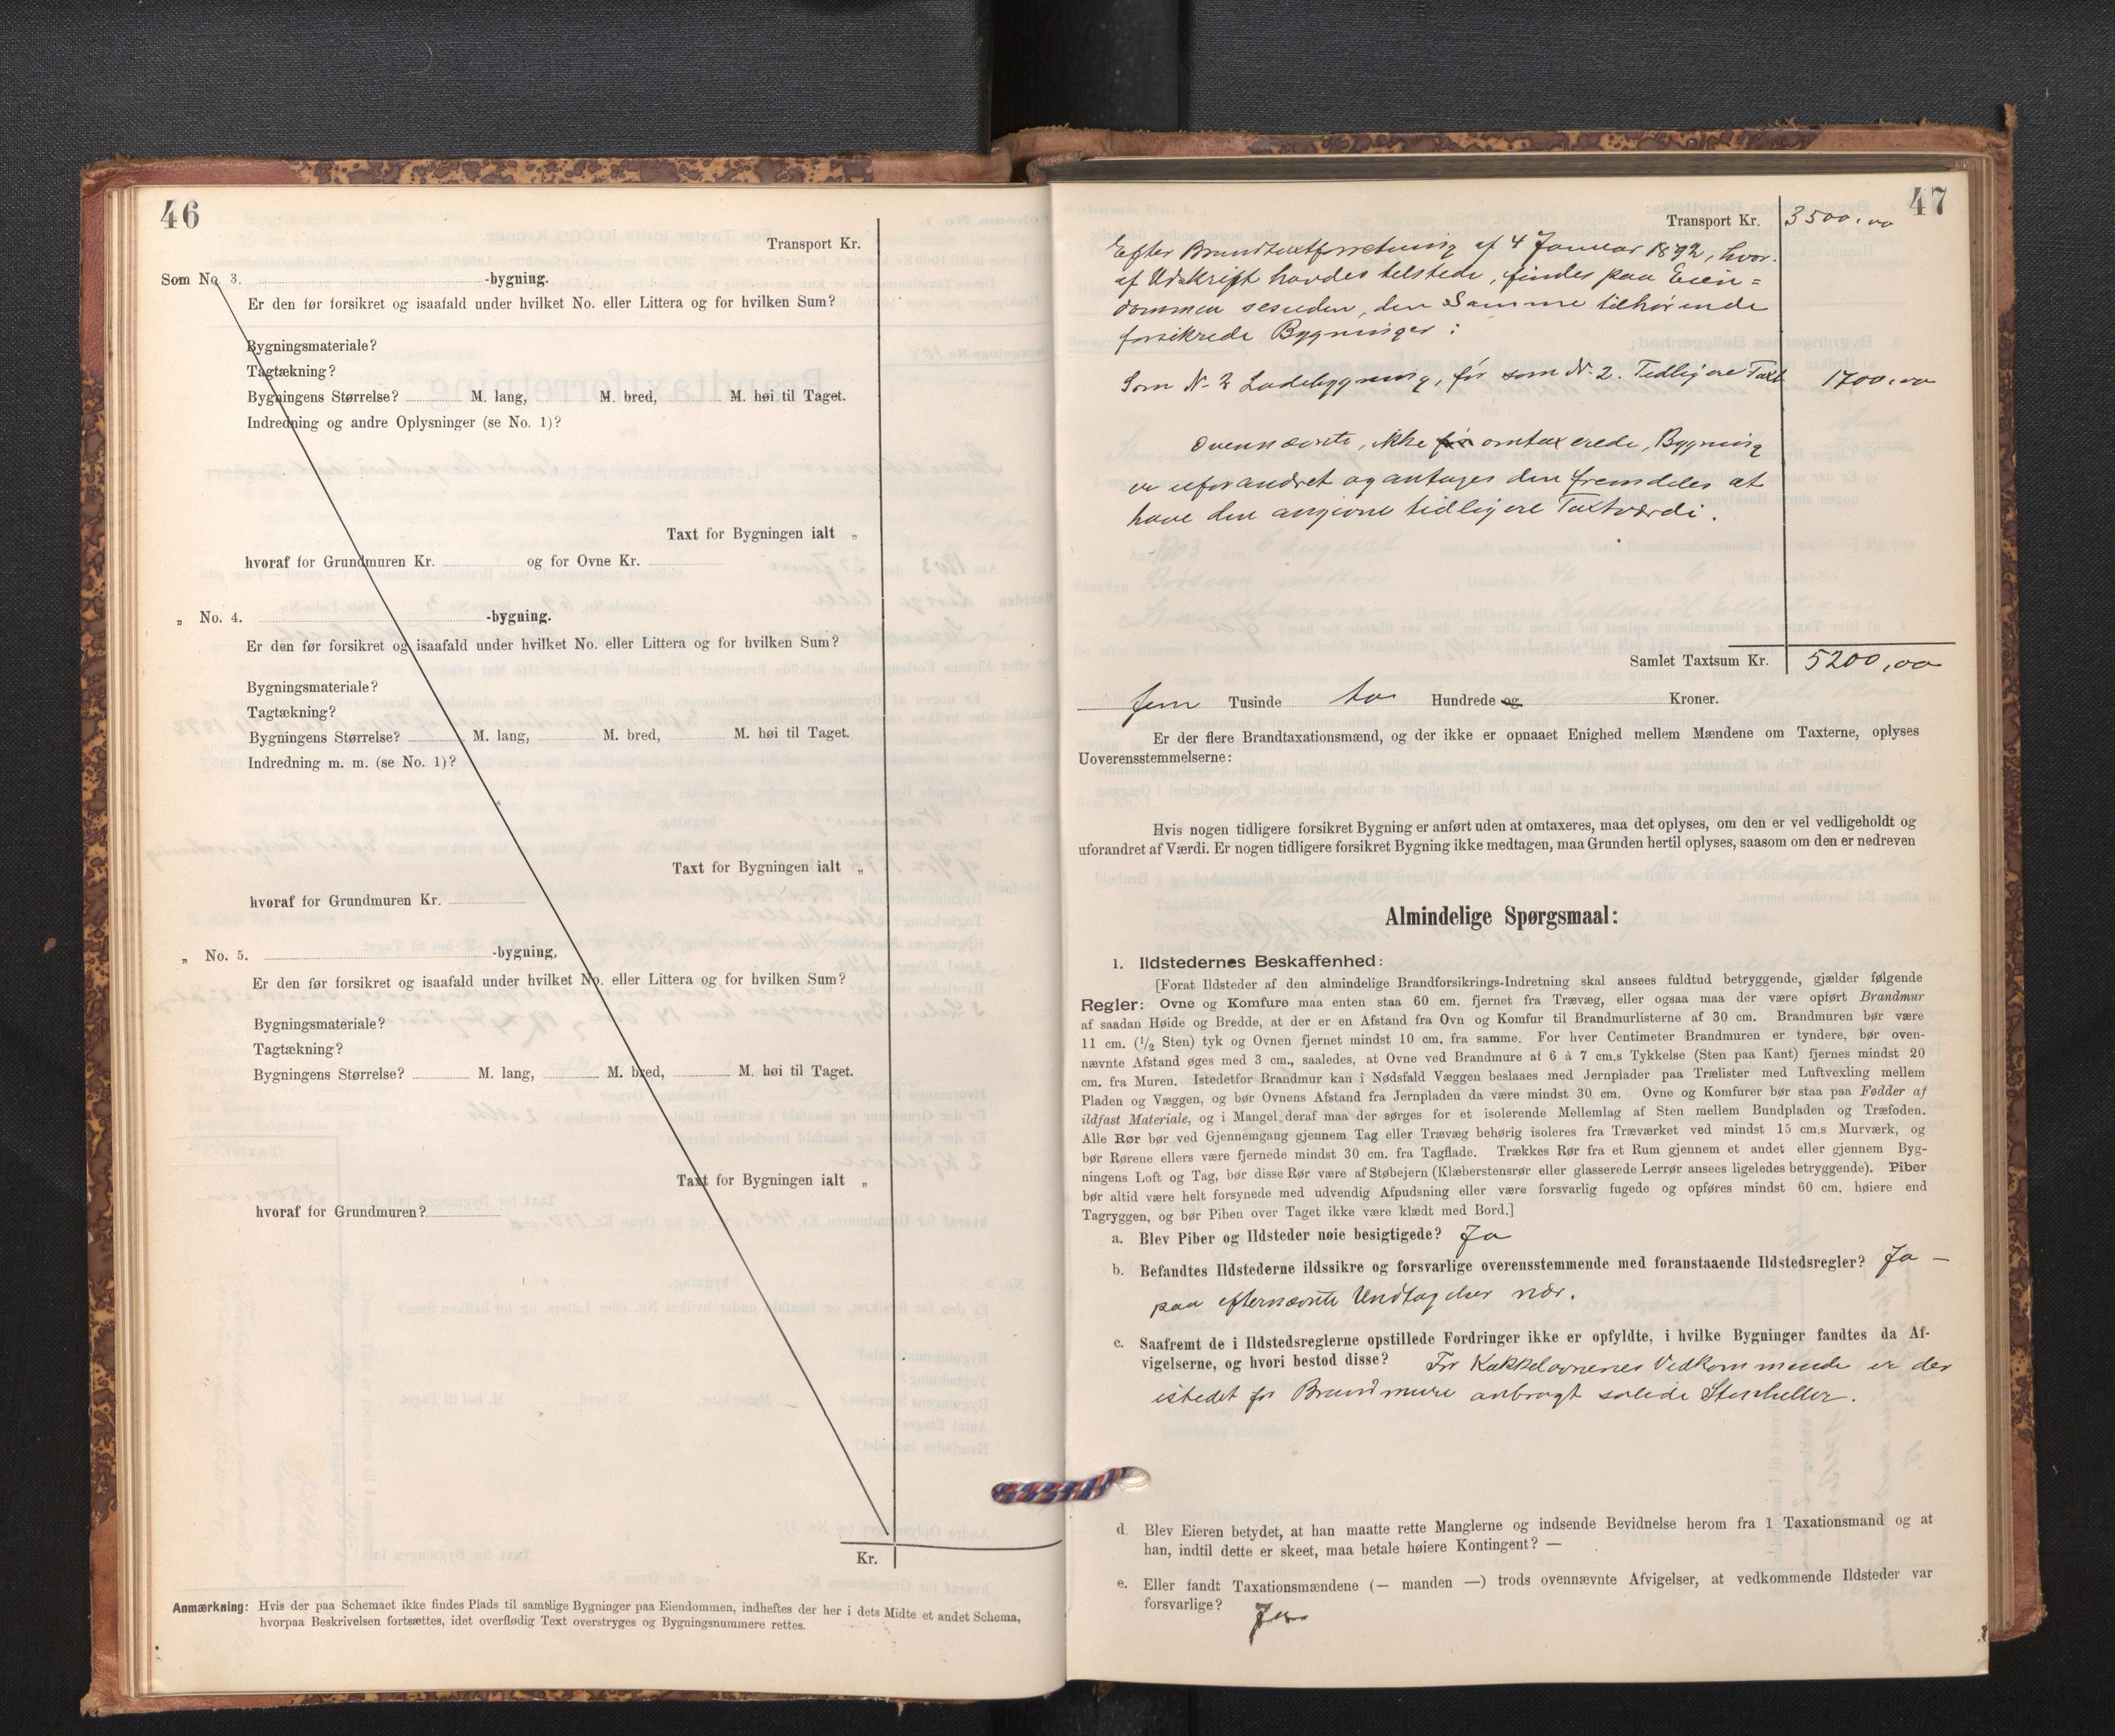 46
Transport Kr.
Som No. 3. -bygning.
Er den før forsikret og isaafald under hvilket No. eller Littera og for hvilken Sum?
Bygningsmateriale?
Tagtækning?
Bygningens Størrelse? M. lang, M. bred, M. høi til Taget.
Indredning og andre Oplysninger (se No. 1)?
Taxt for Bygningen ialt „
hvoraf for Grundmuren Kr. og for Ovne Kr.
„ No. 4. -bygning.
Er den før forsikret og isaafald under hvilket No. eller Littera og for hvilken Sum?
Bygningsmateriale?
Tagtækning?
Bygningens Størrelse? M. lang, M. bred, M. høi til Taget.
Indredning m. m. (se No. 1)?
Taxt for Bygningen ialt „
hvoraf for Grundmuren Kr.
„ No. 5. -bygning,
Er den før forsikret og isaafald under hvilket No. eller Littera og for hvilken Sum?
Bygningsmateriale?
Tagtækning?
Bygningens Størrelse? M. lang, M. bred, M. høi til Taget.
Taxt for Bygningen ialt „
hvoraf for Grundmuren?
Kr.
Anmærkning: Hvis der paa Schemaet ikke findes Plads til samtlige Bygninger paa Eiendommen, indheftes der her i dets Midte et andet Schema,
hvorpaa Beskrivelsen fortsættes, idet overflødig Text overstryges og Bygningsnummere rettes.
47
Transport Kr. 3500,00
Efter Brandtaxtforretning af 4 Januar 1892, hvor-
af Udskrift havdes tilstede, findes paa Eien=
dommen sesuden, den Samme tilhørende
forsikrede Bygninger:
Som N. 2 Ladebygning, før som N. 2. Tidligere Taxt 1700,00
Ovennævnte, ikke før omtaxerede, Bygning
er uforandret og antages den fremdeles at
have den angivne tidligere Taxtværdi.
Samlet Taxtsum Kr. 5200,00
fem Tusinde to Hundrede og Kroner.
Er der flere Brandtaxationsmænd, og der ikke er opnaaet Enighed mellem Mændene om Taxterne, oplyses
Uoverensstemmelserne:
Hvis nogen tidligere forsikret Bygning er anført uden at omtaxeres, maa det oplyses, om den er vel vedligeholdt og
uforandret af Værdi. Er nogen tidligere forsikret Bygning ikke medtagen, maa Grunden hertil oplyses, saasom om den er nedreven
Almindelige Spørgsmaal:
1. Ildstedernes Beskaffenhed:
[Forat Ildsteder af den almindelige Brandforsikrings-Indretning skal ansees fuldtud betryggende, gjælder følgende
Regler: Ovne og Komfure maa enten staa 60 cm. fjernet fra Trævæg, eller ogsaa maa der være opført Brandmur
af saadan Høide og Bredde, at der er en Afstand fra Ovn og Komfur til Brandmurlisterne af 30 cm. Brandmuren bør være
11 cm. (1/2 Sten) tyk og Ovnen fjernet mindst 10 cm. fra samme. For hver Centimeter Brandmuren er tyndere, bør oven-
nævnte Afstand øges med 3 cm., saaledes, at Ovne ved Brandmure af 6 à 7 cm.s Tykkelse (Sten paa Kant) fjernes mindst 20
cm. fra Muren. Istedetfor Brandmur kan i Nødsfald Væggen beslaaes med Jernplader paa Trælister med Luftvexling mellem
Pladen og Væggen, og bør Ovnens Afstand fra Jernpladen da være mindst 30 cm. Ovne og Komfurer bør staa paa Fødder af
ildfast Materiale, og i Mangel deraf maa der sørges for et isolerende Mellemlag af Sten mellem Bundpladen og Træfoden.
Alle Rør bør ved Gjennemgang gjennem Tag eller Trævæg behørig isoleres fra Træværket ved mindst 15 cm.s Murværk, og
bør Rørene ellers være fjernede mindst 30 cm. fra Tagflade. Trækkes Rør fra et Rum gjennem et andet eller gjennem Byg-
ningens Loft og Tag, bør disse Rør være af Støbejern (Klæberstensrør eller glasserede Lerrør ansees ligeledes betryggende). Piber
bør altid være helt forsynede med udvendig Afpudsning eller være forsvarlig fugede og opføres mindst 60 cm. høiere end
Tagryggen, og bør Piben over Taget ikke være klædt med Bord.]
a. Blev Piber og Ildsteder nøie besigtigede? Ja
b. Befandtes Ildstederne ildssikre og forsvarlige overensstemmende med foranstaaende Ildstedsregler? Ja —
paa efternævnte Undtagelser nær.
c. Saafremt de i Ildstedsreglerne opstillede Fordringer ikke er opfyldte, i hvilke Bygninger fandtes da Af-
vigelserne, og hvori bestod disse? For Kakkelovnenes Vedkommende er der
istedet for Brandmure anbragt solide Stenheller.
d. Blev Eieren betydet, at han maatte rette Manglerne og indsende Bevidnelse herom fra 1 Taxationsmand og at
han, indtil dette er skeet, maa betale høiere Kontingent? —
e. Eller fandt Taxationsmændene (— manden —) trods ovennævnte Afvigelser, at vedkommende Ildsteder var
forsvarlige? Ja